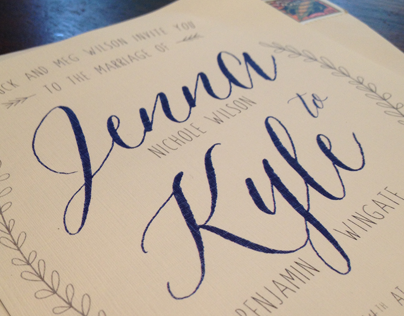 AND MEG WILSON INVITE YOU
TO THE MARRIAGE OF
Jenna
NICHOLE WILSON
to
Kyle
BENJAMIN WINGATE
AT